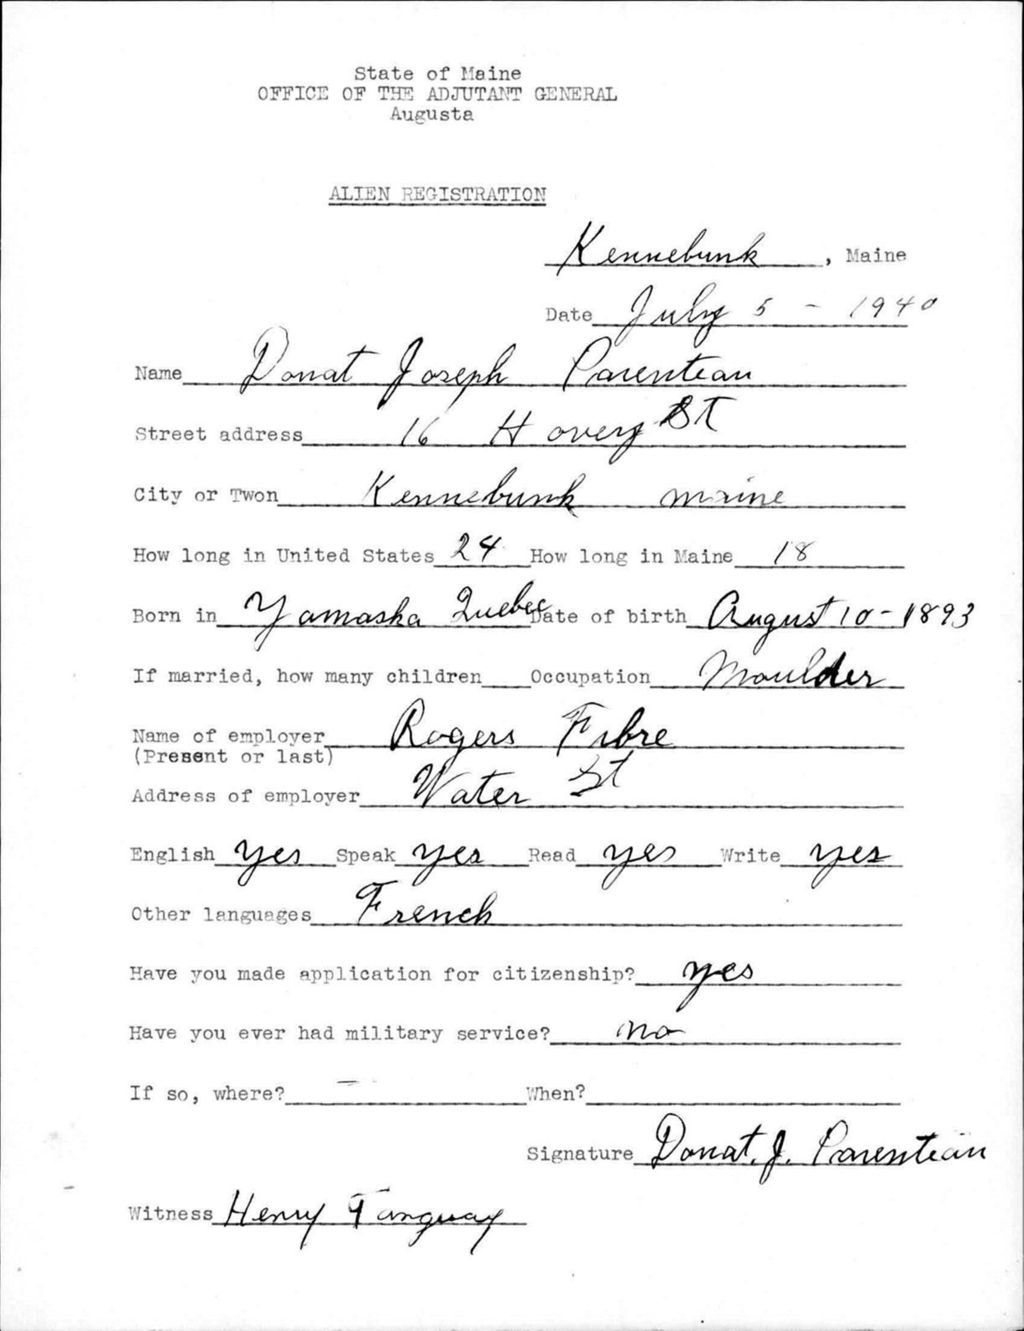 State of Maine
OFFICE OF THE ADJUTANT GENERAL
Augusta
ALIEN REGISTRATION
Kennebunk, Maine
Date July 5 - 1940
Name Donat Joseph Parenteau
Street address 16 Hovey St
City or Twon Kennebunk maine
How long in United States 24 How long in Maine 18
Born in Yamaska Quebec Date of birth August 10-1893
If married, how many children Occupation Moulder
Name of employer Rogers Fibre
(Present or last)
Address of employer Water St
English yes Speak yes Read yes Write yes
Other languages French
Have you made application for citizenship? yes
Have you ever had military service? no
If so, where? - When?
Signature Donat. J. Parenteau
Witness Henry Tanguay